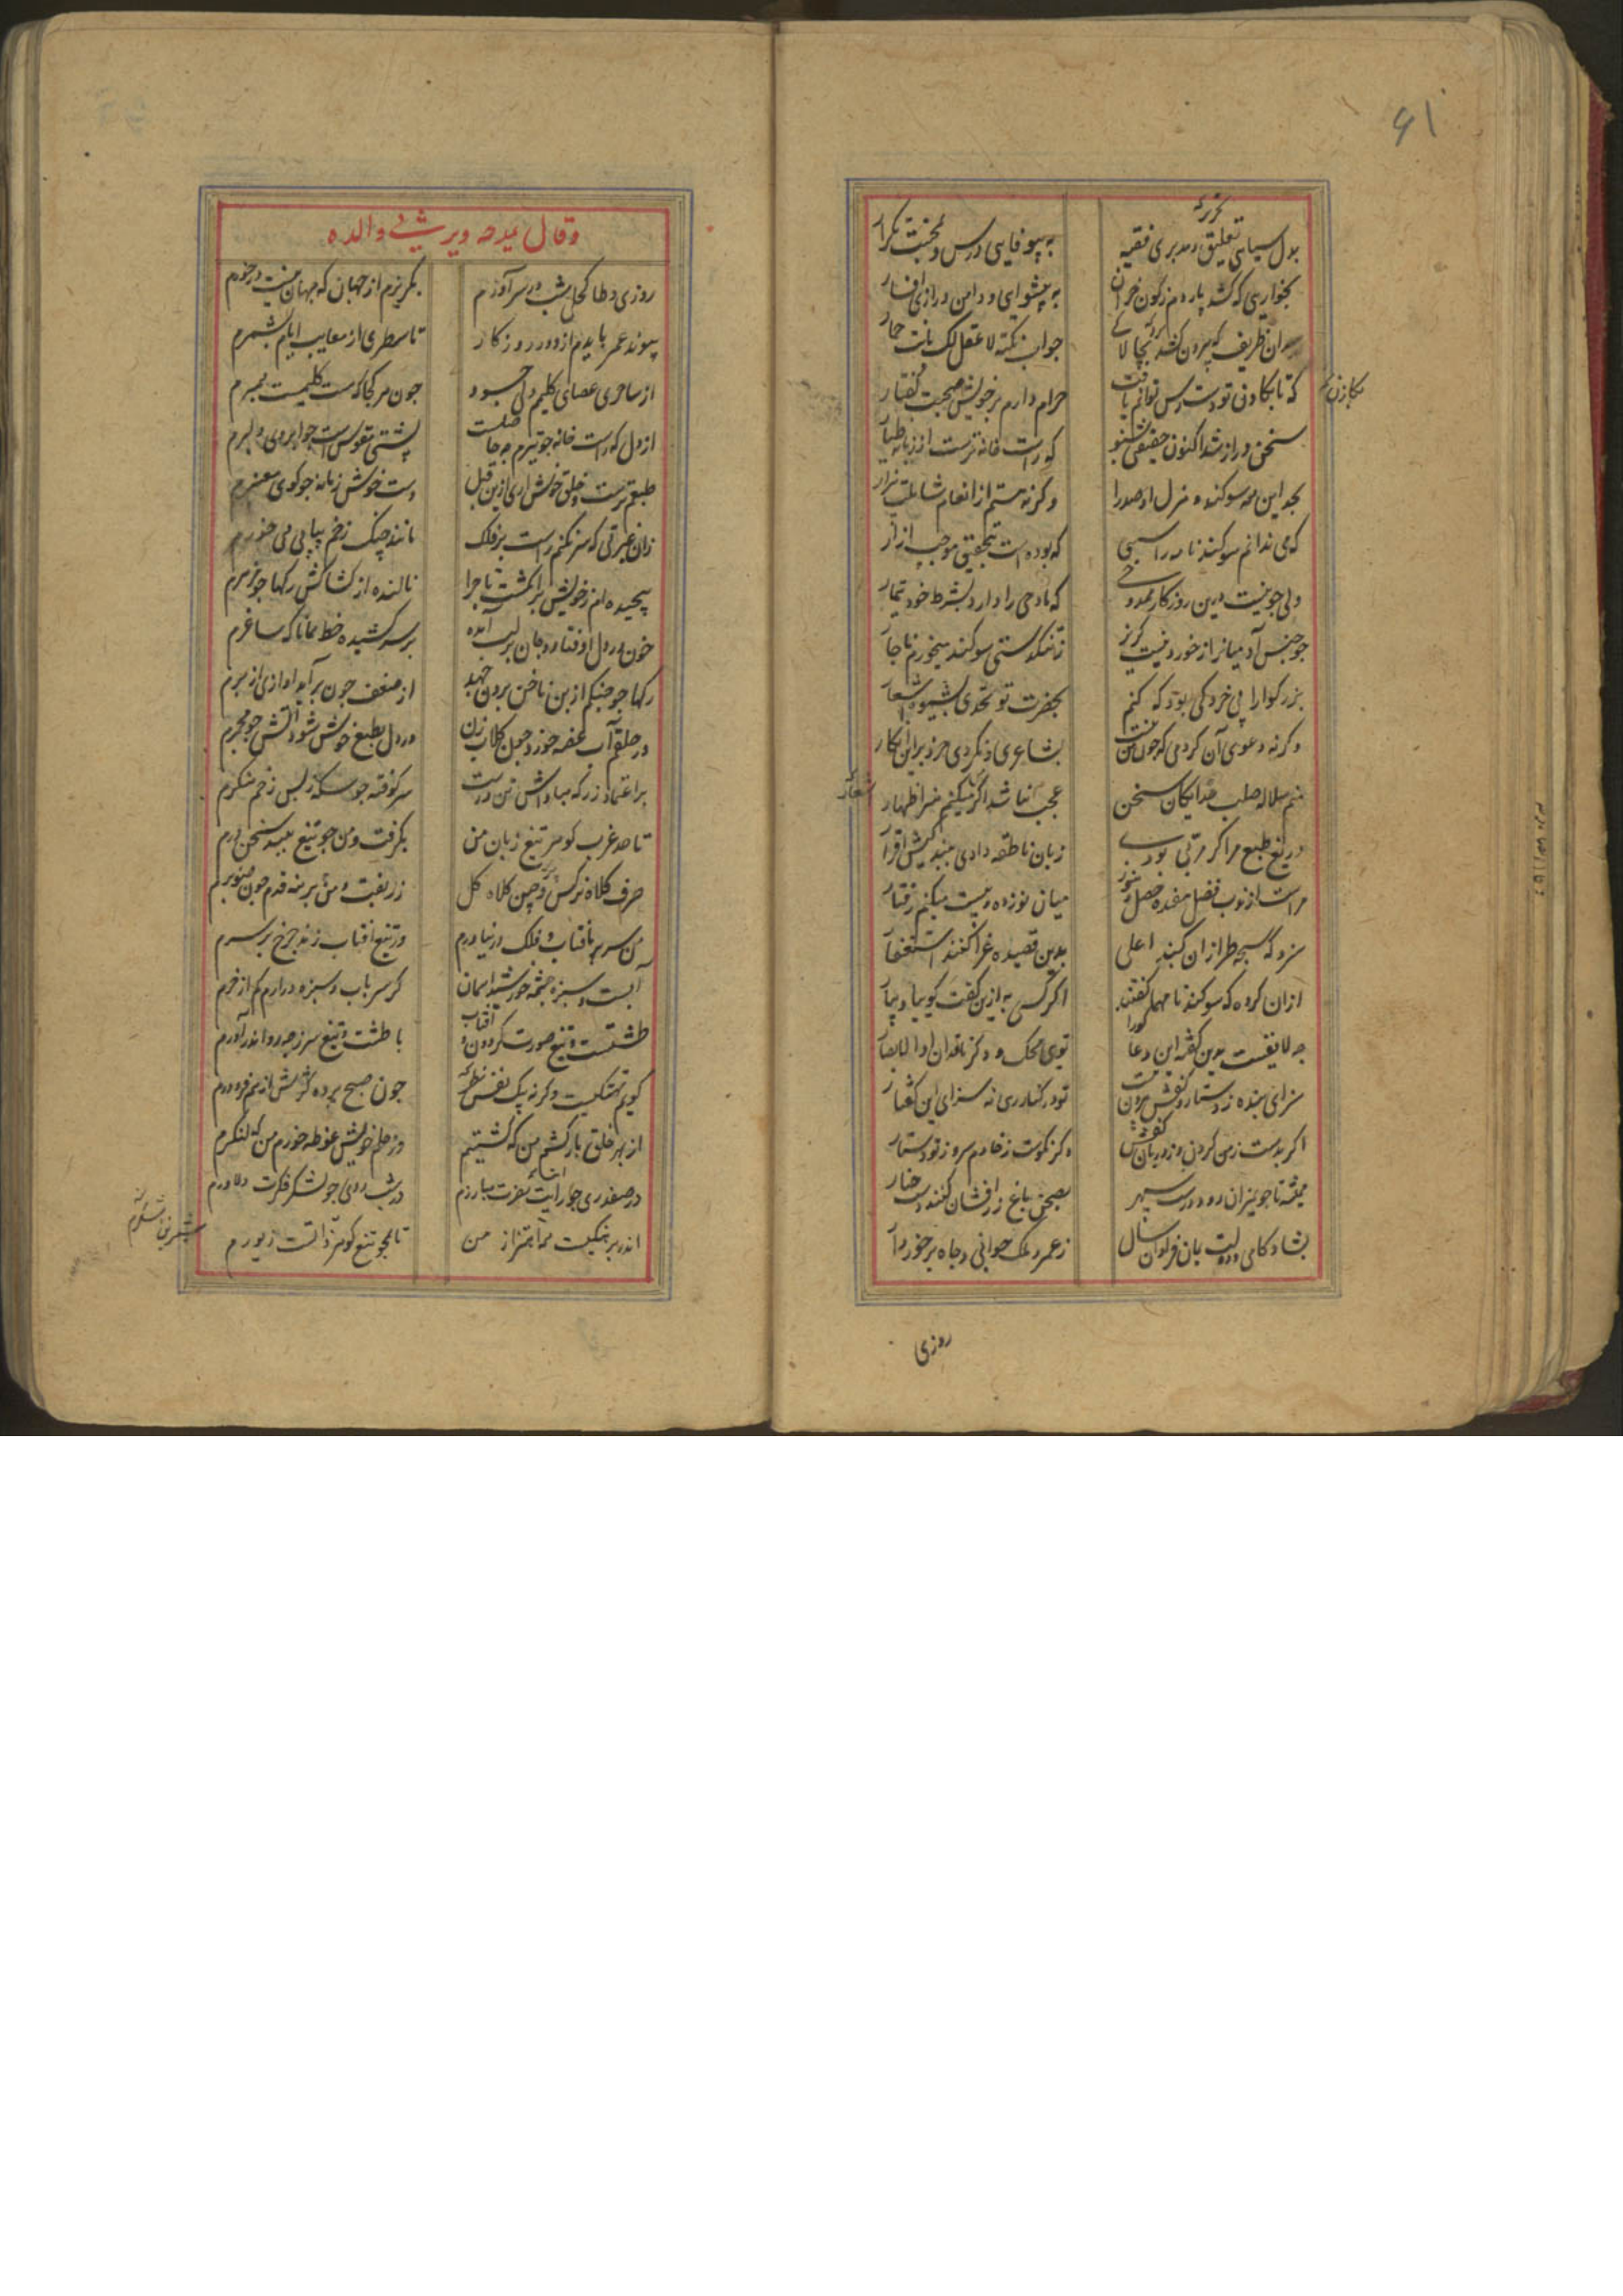 ۶۱
بدل سیاهی تعلیق و مدبری فقیه
به پیوفایی درس و محنت تکرار
بخواری که کشد پاردم ز کون خران
به پیشوایی و دامن درازی افسار
جواب نکته لا عقل لک بانت حمار
که تا بکادن تو دست رس توانم یافت
حرام دارم بر خویش صحبت گفتار
سخن دراز شد اکنون حقیقتی بشنو
که راست خانه ترست از زبانه طیار
بجو این همه سوکند هزل او صدرا
وکرنه هستم از انعام شاملت بیزار
که می ندانم سوکند نامه را سببی
که بوده است بتحقیق موجب ازار
ولی جو نیست درین روزکار ممدوحی
که مادحی را دارد بشرط خود تیمار
جو جنس آدمیانرا از خورد نیست کزیر
ز تنکدستی سوکند میخورم ناجار
بزرکوارا بی خردکی بود که کنم
بحضرت تو تحدی بشیوه اشعار
وکرنه دعوی آن کردمی که جون من نیست
بشاعری و نکردی خرد برین انکار
منم سلاله صلب خدایکان سخن
عجب نباشد اکر میکنم هنر اظهار
دریغ طبع مرا کر مربی بودی
زبان ناطقه دادی ببندکیش اقرار
مراست از نوب فضل هفده خصل و هنوز
میان نوزده و بیست میکنم رفتار
سزد که سبحه طرازان کنبد اعلی
بدین قصیده غرا کنند استغفار
ازان کروه که سوکند نامها کفتند
اکر کسی به ازین کفت کو بیا و بیار
جه لایقست بدین کفته این دعا کورا
توی محک و دکر ناقدان اولابصار
سزای بنده ز دستار و کفش بیرون نیست
تو در کنار ری نه سزای این کفتار
اکر بدست ز من کردن و ز دربان کفش
وکر نکوست ز خادم سر و ز تو دستار
همیشه تا جو بمیزان رود درست سپهر
بصحن باغ زر افشان کنند دست چنار
بشادکامی و دولت بمان فراوان سال
ز عمر و ملک جوانی و جاه برخوردار
روزی
وقال یمدحه ویرثی والده
روزی وطا کحلی شب در سر آورم
بکریزم از جهان که جهان نیست در خورم
پیوند عمر بایدم از دور روزکار
تا سطری از معایب ایام بشمرم
از ساحری عصای کلیم ولی حسود
جون هر کجا که هست کلیمیست بمبرم
از دل که راست خانه جو تیرم جه حاصلست
پشتی مقوس است جو ابروی دلبرم
طبعم ترست و خلق خوش اری ازین قبل
دست خوش زمانه جو کوی معنبرم
زان غیرتی که سر نکنم راست بر فلک
مانند چنک زخم پیاپی همی خورم
پیچیده ام ز خویش برانکشت ماجرا
نالنده از کشاکش رکها جو مزمرم
خون در دل اوفتاده و جان بر لب آمده
بر سر کشیده خط همانا که ساغرم
رکها جو جنکم از بن ناخن برون جهد
از ضعف جون برآید اوازی از برم
در حلقم آب غصه خورد جون کلاب زن
در دل بطبع خوش شود آتش جو مجمرم
بر اعتماد زر که مباداش تن درست
سرکوفته جو سکه ز بس زخم منکرم
تا حد غرب کوهر تیغ زبان من
بکرفت و من جو تیغ ببند سخن درم
صرف کلاه نرکس و چین کلاه کل
زربفت و من برهنه قدم جون صنوبرم
من سر بر آفتاب و فلک در نیاورم
ور تیغ افتاب زند جرخ بر سرم
آبست و سبزه جشمه خورشید اسمان
کر سر باب و سبزه درارم کم از خرم
طشتست و تیغ صورت کردون و آفتاب
با طشت و تیغ سر زجه رو اندر آورم
کویم تهتکیست وکرنه بیک نفس
جون صبح پرده کژیش از هم فرو درم
از بهر خلق بار کشم من که کشتیم
وز حلم خویش غوطه خورم من که لنکرم
در صفدری جو رایت نصرت مبارزم
در شب روی جو لشکر فکرت دلاورم
اندر برهنکیست همه اهتزاز من
تا همجو تیغ کوهر ذاتست زیورم